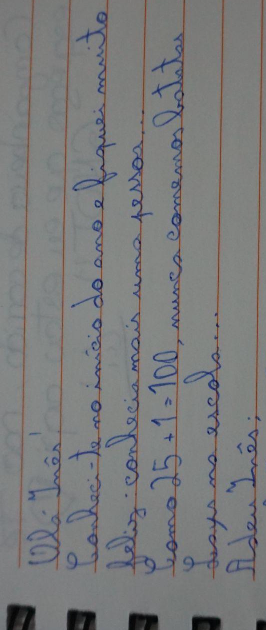 Olá Inês!
Conheci-te no início do ano e fiquei muito
feliz. conhecia mais uma pessoa...
Como 25 + 1 = 100, nunca comemos batatas
na escola...
Adeus Inês;